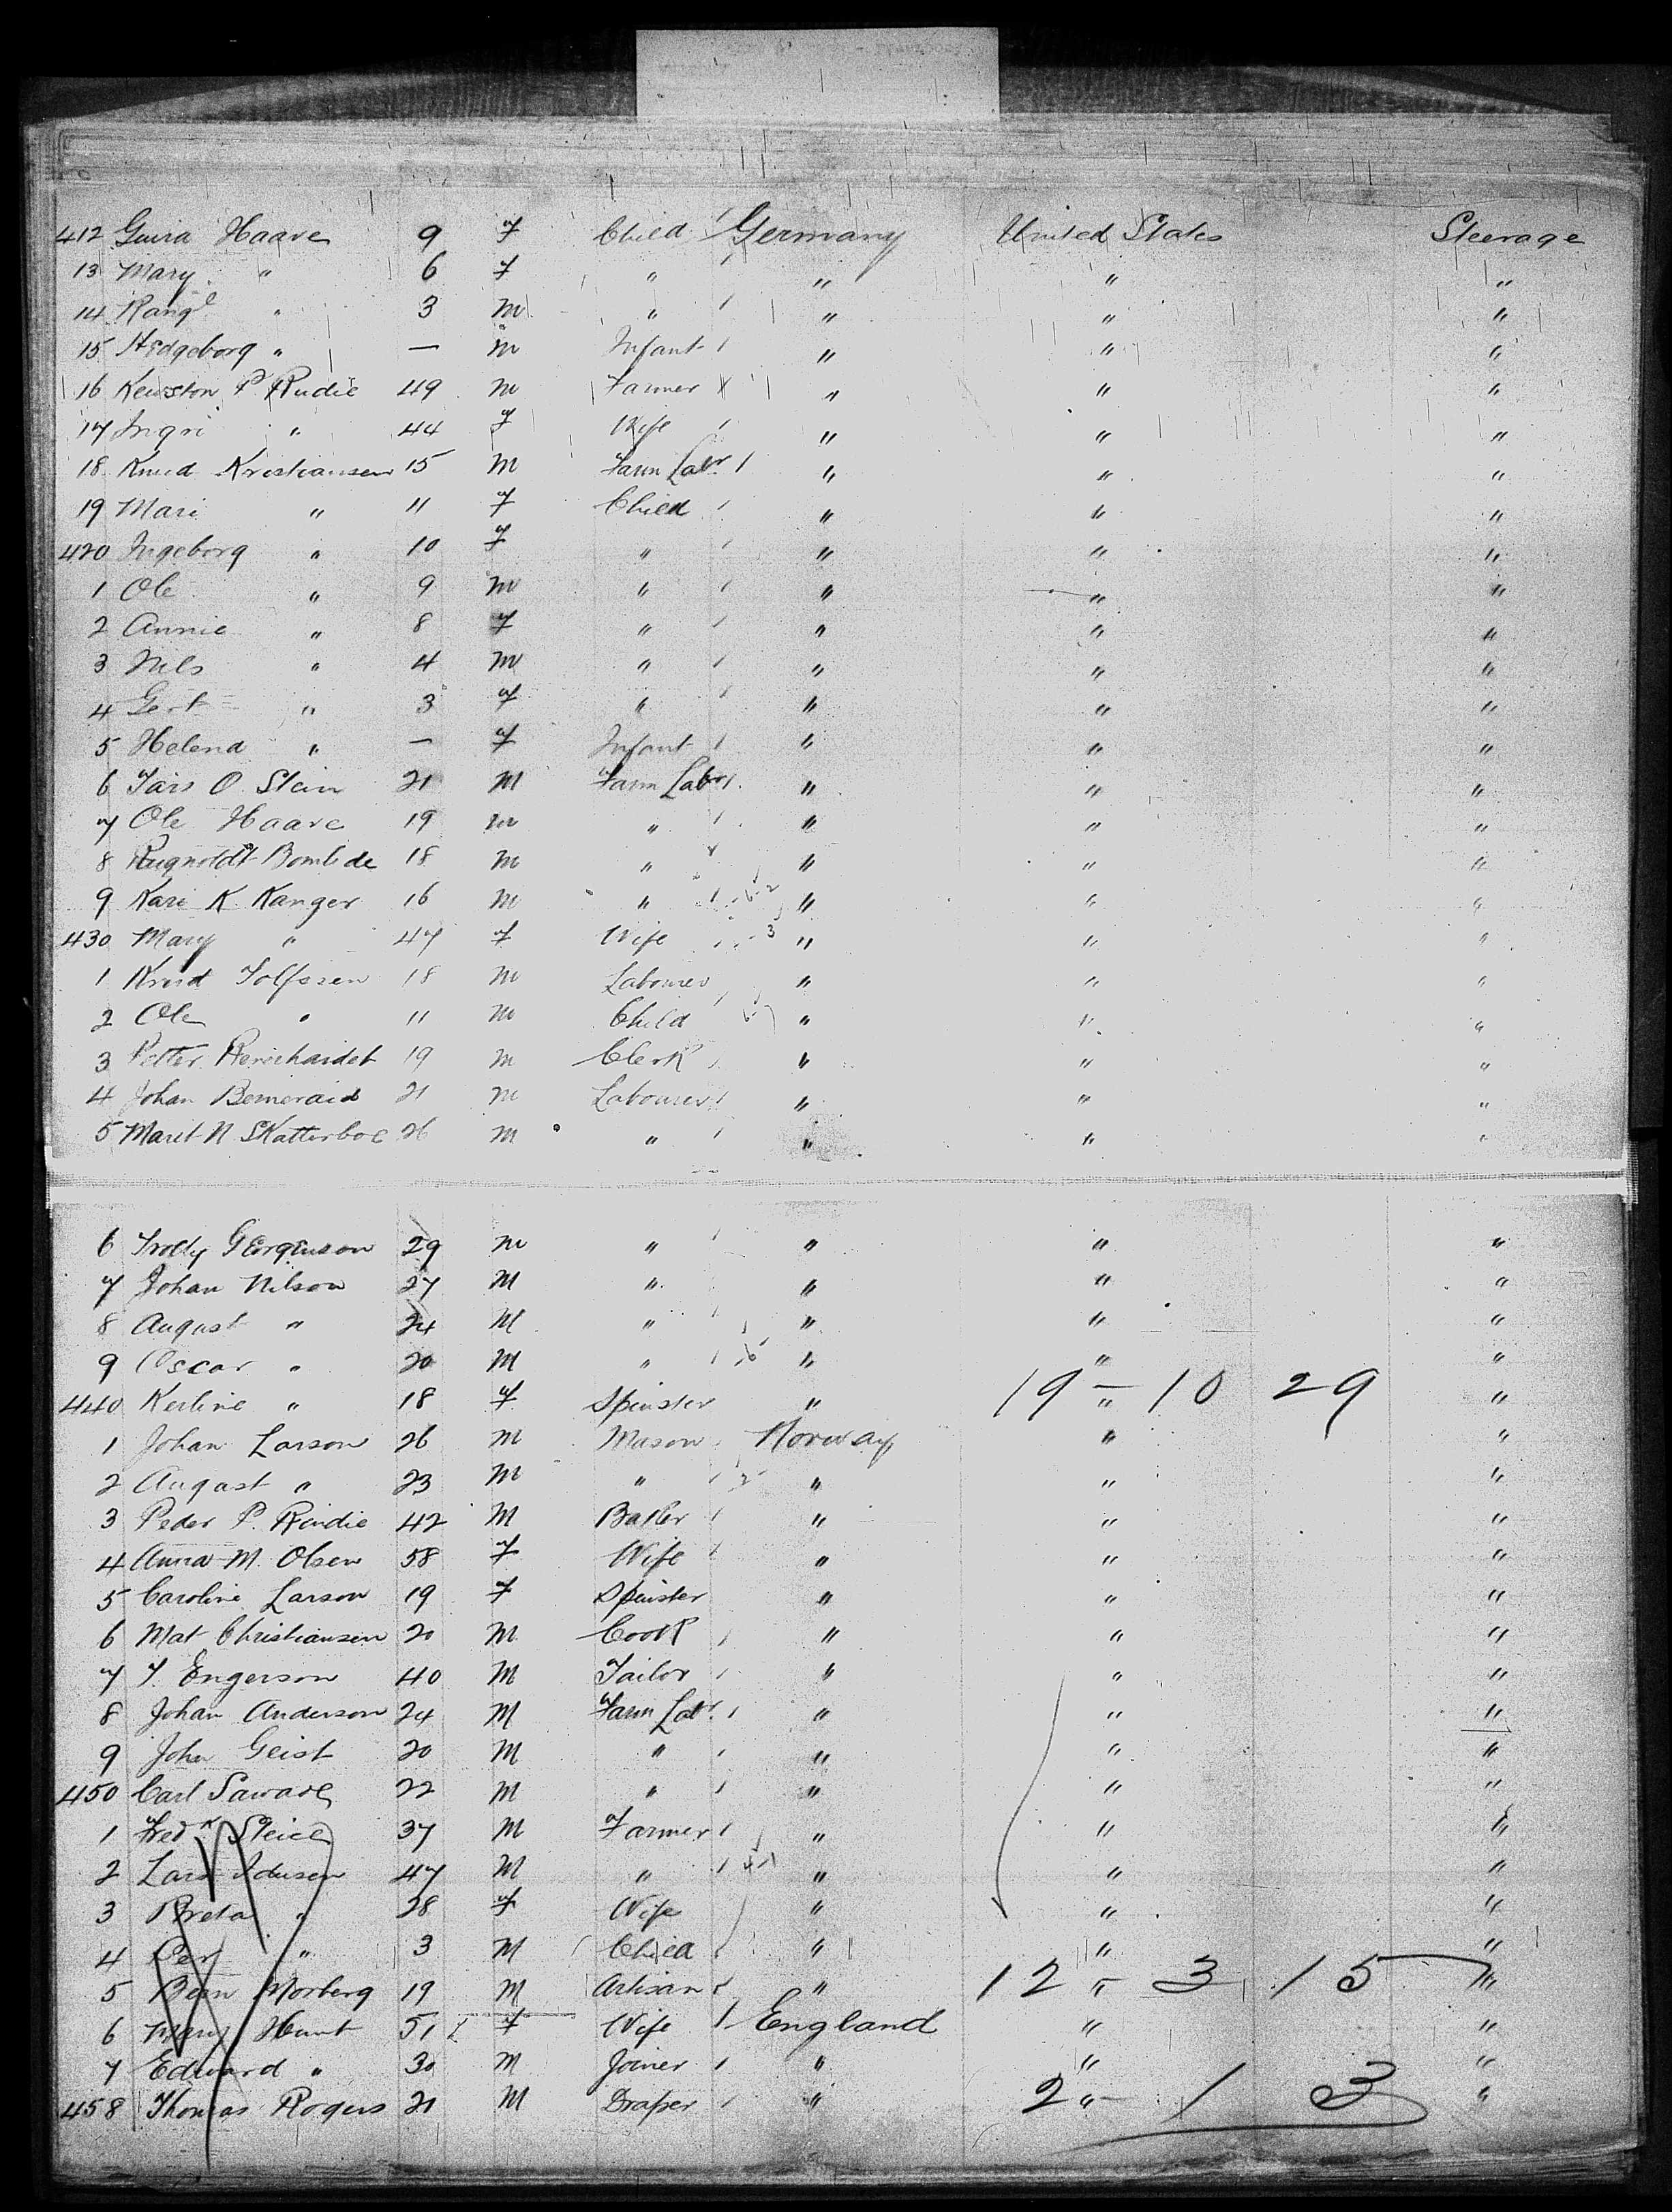 412 Guira Haave 9 f Child Germany United States Steerage
13 Mary " 6 f " " " "
14 Rang " 3 m " " " "
15 Hedgeborg " — m Infant " " "
16 P. Rudie 49 m Farmer " " "
17 Ingri " 44 f Wife " " "
18 Knud Kristiansen 15 m Farm Labr " " "
19 Mari " 11 f Child " " "
420 Ingeborg " 10 f " " " "
1 Ole " 9 m " " " "
2 Annie " 8 f " " " "
3 Nils " 4 m " " " "
4 Gert " 3 f " " " "
5 Helena " — f Infant " " "
6 O. Stein 21 m Farm Labr " " "
7 Ole Haave 19 m " " " "
8 18 m " " " "
9 Kari K Kanger 16 m " " " "
430 Mary " 47 f Wife " " "
1 Knud Tolfssen 18 m Labourer " " "
2 Ole " 11 m Child " " "
3 Petter 19 m Clerk " " "
4 Johan 21 m Labourer " " "
5 Marit N Skatterboe 26 m " " " "
6 29 m " " " "
7 Johan Nilson 27 m " " " "
8 August " 24 m " " " "
9 Oscar " 20 m " " " "
440 Kerline " 18 f Spinster " " "
19 – 10 29
1 Johan Larson 26 m Mason Norway " "
2 August " 23 m " " " "
3 Peder P. Rindie 42 m Baker " " "
4 Anna M. Olsen 58 f Wife " " "
5 Caroline Larson 19 f Spinster " " "
6 Mat Christiansen 20 m Cook " " "
7 T. Engerson 40 m Tailor " " "
8 Johan Anderson 24 m Farm Labr " " "
9 John Geist 20 m " " " "
450 Carl 22 m " " " "
1 Fredk 37 m Farmer " " "
2 Lars 47 m " " " "
3 Breta " 28 f Wife " " "
4 Per " 3 m Child " " "
5 Morberg 19 m Artisan " " "
12 – 3 15
6 Mary Hunt 51 f Wife England " "
7 Edward " 30 m Joiner " " "
458 Thomas Rogers 21 m Draper " " "
2 – 1 3